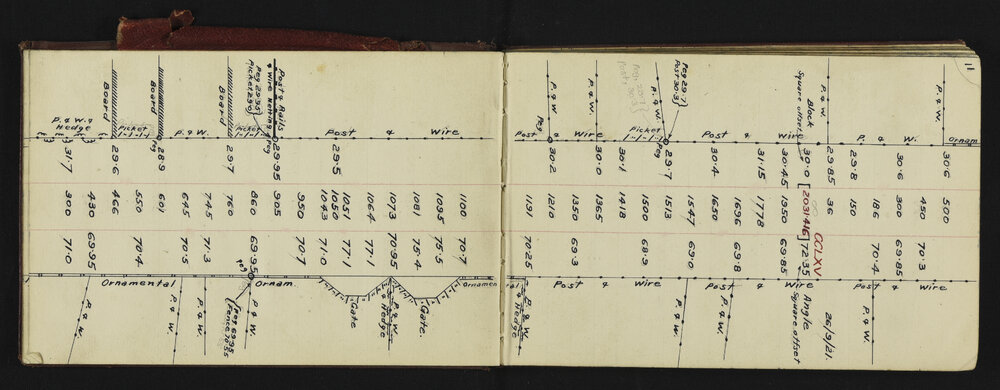 Board
Board
Board
Post & Rails
& Wire Netting
Peg 29.95
Picket 29.0
P. & W. &
Hedge
Picket
P. & W.
Picket
Post & Wire
Peg
Peg
31.7
29.6
28.9
29.7
29.95
29.5
300
430
466
550
601
645
745
760
860
905
950
1043
1050
1051
1064
1073
1081
1095
1100
71.0
69.95
70.4
70.5
71.3
69.95
70.7
71.0
77.1
77.1
70.95
75.4
75.5
70.7
Peg
Ornamental
Ornam.
Ornamen
P. & W.
P. & W.
P. & W.
P. & W.
Peg 69.95
Fence 70.55
Gate
P. & W.
& Hedge
Gate.
11
P. & W.
P. & W.
Peg 30.1
Post
P. & W.
Peg 29.7
Post 30.3
Block
Square offset
P. & W.
P. & W.
Post & Wire
Picket
Post & Wire
P. & W.
Ornam
Peg
Peg
30.2
30.0
30.1
29.7
30.4
31.15
30.45
30.0
29.85
29.8
30.6
30.6
1191
1210
1350
1365
1418
1500
1513
1547
1650
1696
1778
1950
[2031.416]
36
150
186
300
450
500
CCLXV
70.25
69.3
68.9
69.0
69.8
69.85
72.35
70.4
69.85
70.3
tal
Post & Wire
Post & Wire
Post & Wire
P. & W.
& Hedge
P. & W.
P. & W.
Angle
Square offset
26/9/21.
P. & W.